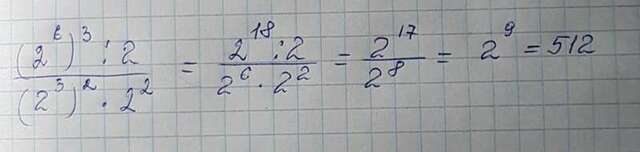 \frac{(2^6)^3 : 2}{(2^3)^2 \cdot 2^2} = \frac{2^{18} : 2}{2^6 \cdot 2^2} = \frac{2^{17}}{2^8} = 2^9 = 512